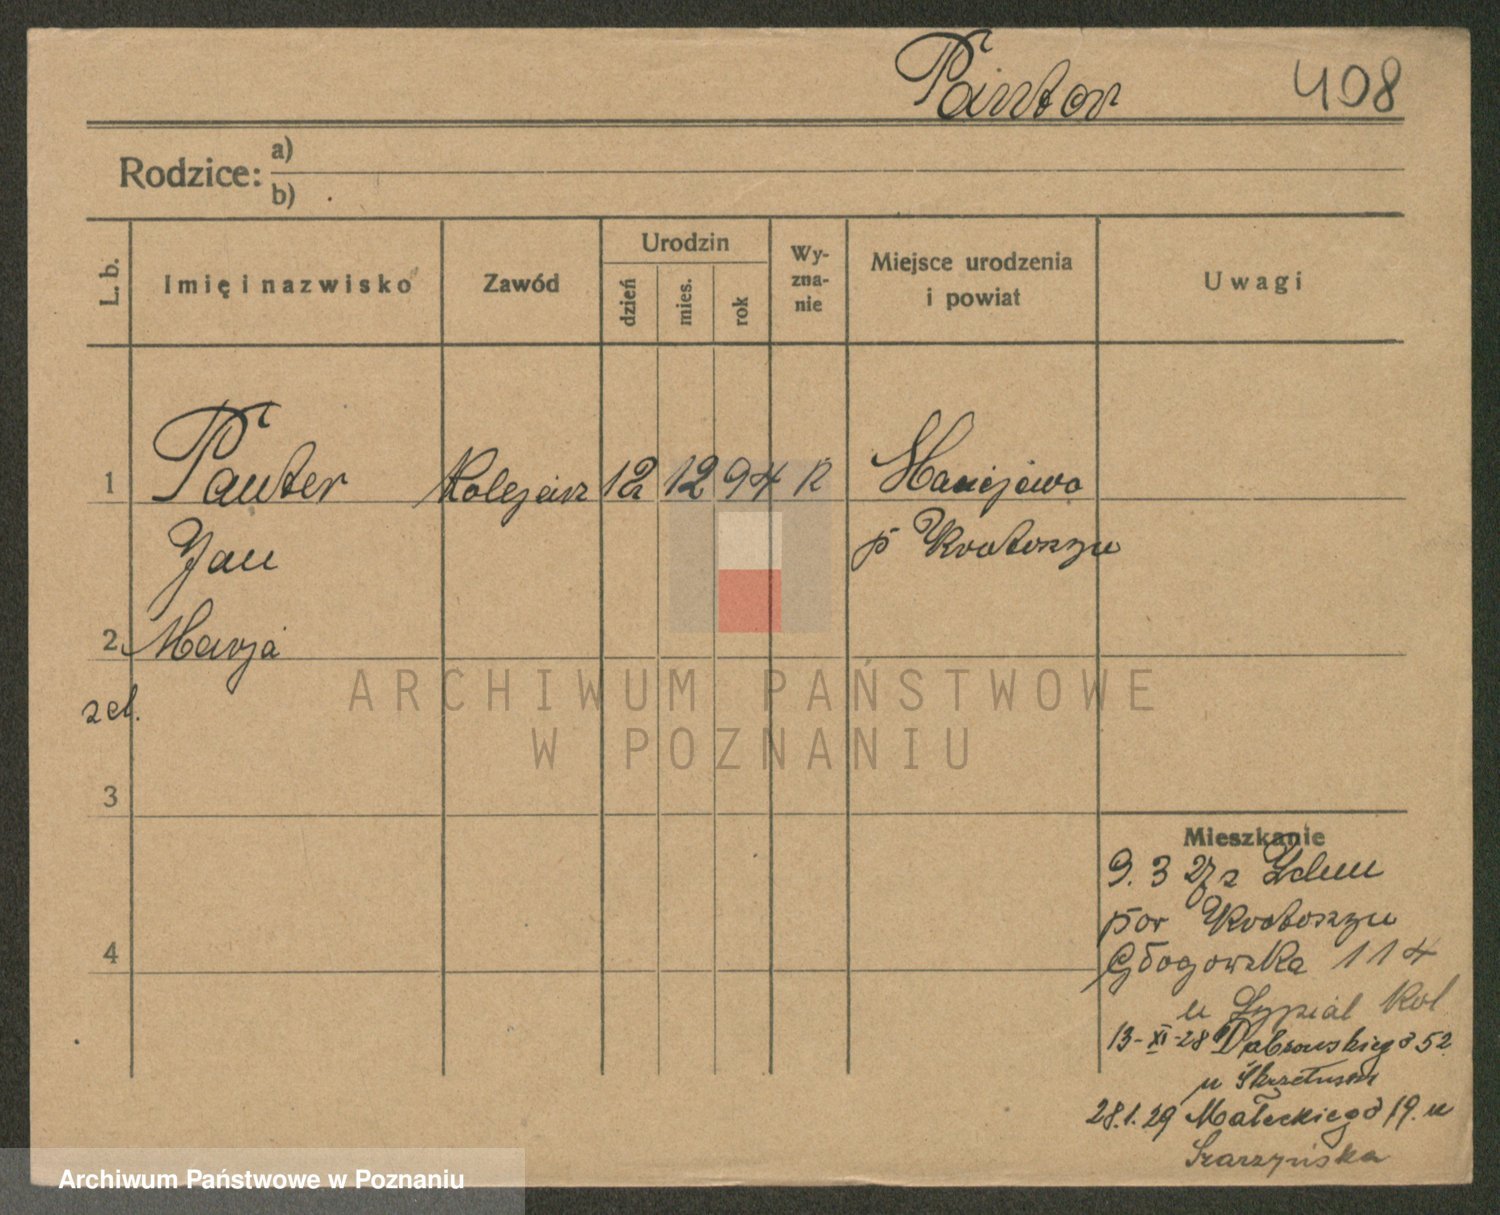 Panter 408
Rodzice: a)
b)
L. b. Imię i nazwisko Zawód Urodzin dzień mies. rok Wy-zna-nie Miejsce urodzenia i powiat Uwagi
1 Panter Kolejarz 12 12 94 R Maciejewo
Jan p Krotoszyn
2 Marja
zel.
3
4
Mieszkanie
9. 3 27 z Zdun
pow Krotoszyn
Głogowska 114
u Kol
13-XI-28 Dąbrowskiego 52
u
28.1.29 Małeckiego 19. u
Szarzyńska
ARCHIWUM PAŃSTWOWE
W POZNANIU
Archiwum Państwowe w Poznaniu